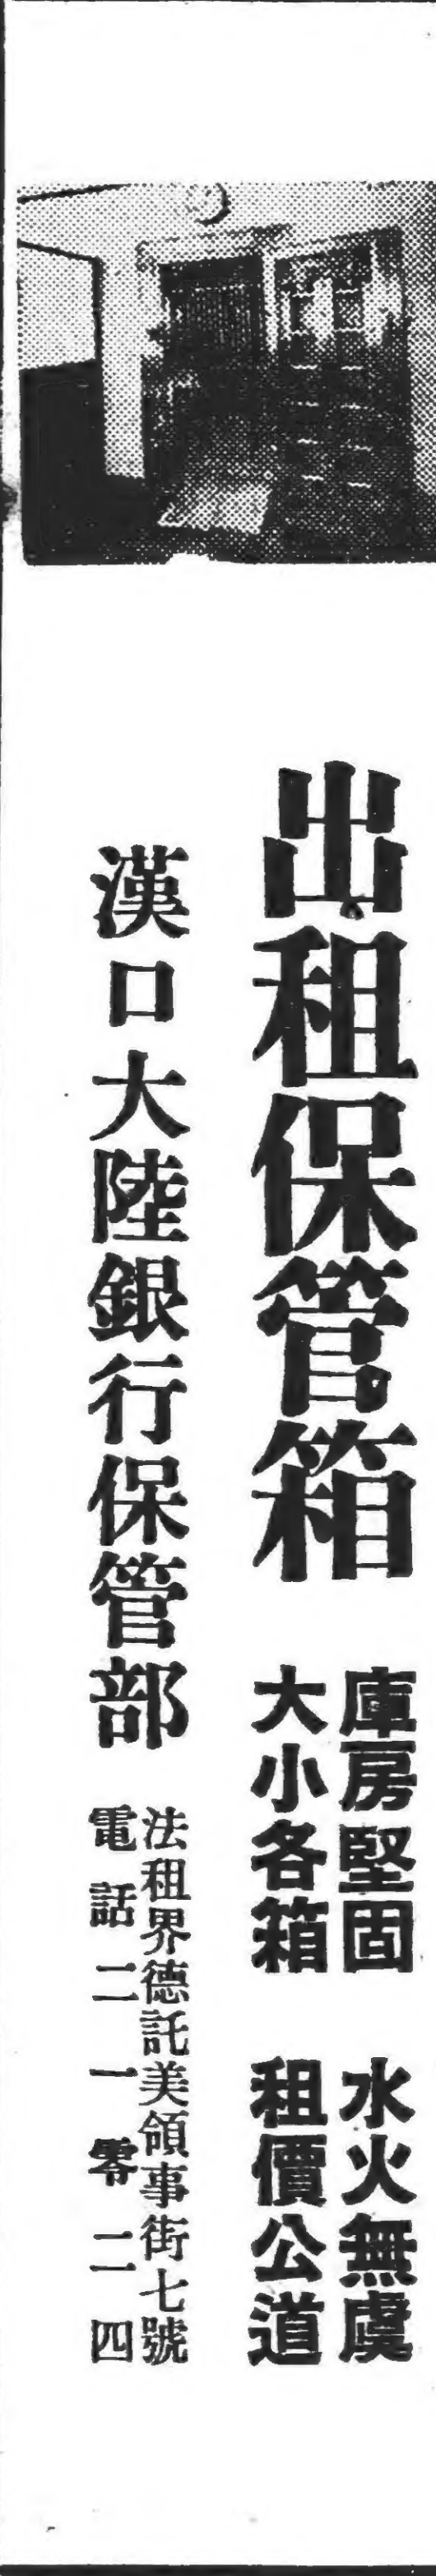 出租保管箱
庫房堅固　水火無虞
大小各箱　租價公道
漢口大陸銀行保管部
法租界德託美領事街七號
電話二一零二四